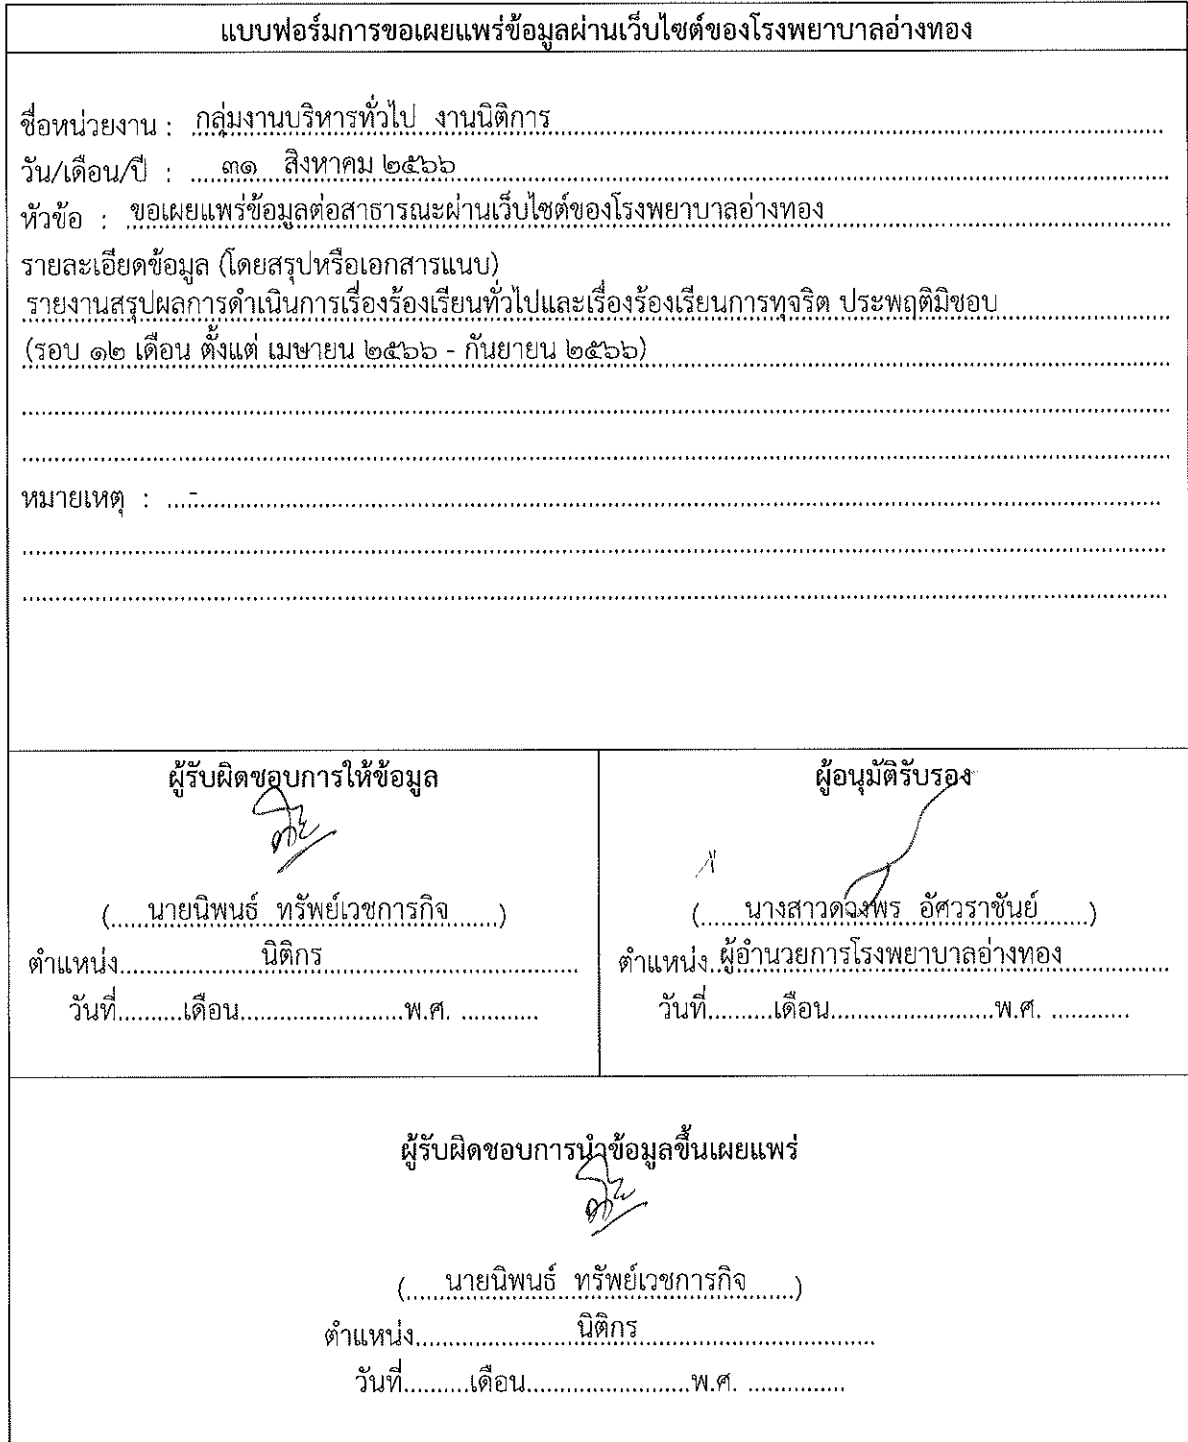 แบบฟอร์มการขอเผยแพร่ข้อมูลผ่านเว็บไซต์ของโรงพยาบาลอ่างทอง
ชื่อหน่วยงาน : กลุ่มงานบริหารทั่วไป งานนิติการ
วัน/เดือน/ปี : ๓๑ สิงหาคม ๒๕๖๖
หัวข้อ : ขอเผยแพร่ข้อมูลต่อสาธารณะผ่านเว็บไซต์ของโรงพยาบาลอ่างทอง
รายละเอียดข้อมูล (โดยสรุปหรือเอกสารแนบ)
รายงานสรุปผลการดำเนินการเรื่องร้องเรียนทั่วไปและเรื่องร้องเรียนการทุจริต ประพฤติมิชอบ
(รอบ ๑๒ เดือน ตั้งแต่ เมษายน ๒๕๖๖ - กันยายน ๒๕๖๖)
หมายเหตุ : ...-...
ผู้รับผิดชอบการให้ข้อมูล
(......นายนิพนธ์ ทรัพย์เวชการกิจ......)
ตำแหน่ง..............นิติกร..............
วันที่.........เดือน.......................พ.ศ. ...........
ผู้อนุมัติรับรอง
(......นางสาวดวงพร อัศวราชันย์......)
ตำแหน่ง..ผู้อำนวยการโรงพยาบาลอ่างทอง..............
วันที่.........เดือน.......................พ.ศ. ...........
ผู้รับผิดชอบการนำข้อมูลขึ้นเผยแพร่
(......นายนิพนธ์ ทรัพย์เวชการกิจ......)
ตำแหน่ง..............นิติกร..............
วันที่.........เดือน.......................พ.ศ. ..............